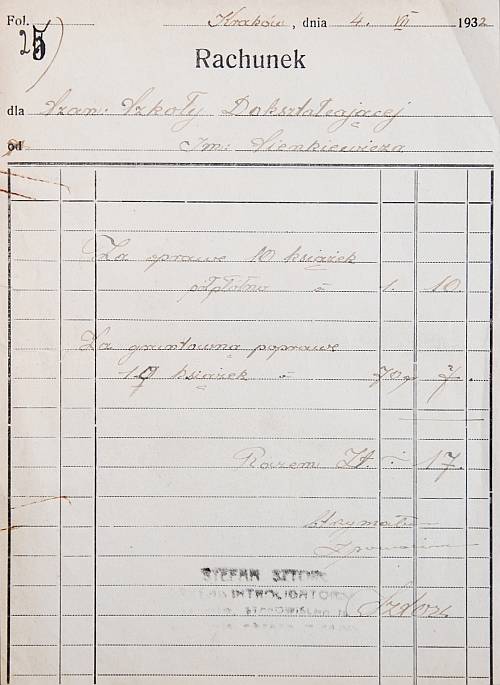 Fol. Kraków, dnia 4. VII 1932
25
Rachunek
dla Szan: Szkoły Dokształcającej
od Im: Sienkiewicza
Za oprawę 10 książek
płótno 1. 10.
Za gruntowną poprawę
10 książek 70 gr 7.
Razem Zł. 17.
Otrzymałem
STEFAN
INTROLIGATORNIA